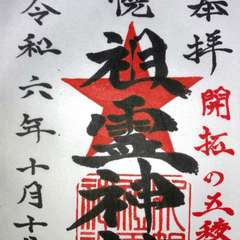 奉拝
開拓の五稜
幌
祖霊神
令和六年十月十